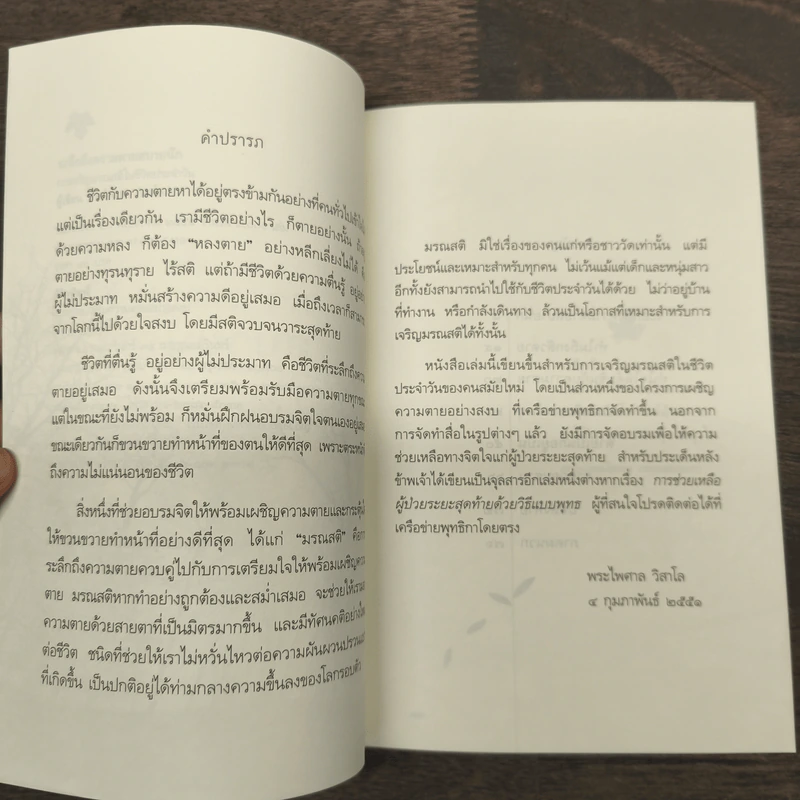 คำปรารภ
ชีวิตกับความตายหาได้อยู่ตรงข้ามกันอย่างที่คนทั่วไป
แต่เป็นเรื่องเดียวกัน เรามีชีวิตอย่างไร ก็ตายอย่างนั้น
ด้วยความหลง ก็ต้อง “หลงตาย” อย่างหลีกเลี่ยงไม่ได้
ตายอย่างทุรนทุราย ไร้สติ แต่ถ้ามีชีวิตด้วยความตื่นรู้
ผู้ไม่ประมาท หมั่นสร้างความดีอยู่เสมอ เมื่อถึงเวลาก็
จากโลกนี้ไปด้วยใจสงบ โดยมีสติจวบจนวาระสุดท้าย
ชีวิตที่ตื่นรู้ อยู่อย่างผู้ไม่ประมาท คือชีวิตที่ระลึกถึงความ
ตายอยู่เสมอ ดังนั้นจึงเตรียมพร้อมรับมือความตายทุก
แต่ในขณะที่ยังไม่พร้อม ก็หมั่นฝึกฝนอบรมจิตใจตนเอง
ขณะเดียวกันก็ขวนขวายทำหน้าที่ของตนให้ดีที่สุด เพราะ
ถึงความไม่แน่นอนของชีวิต
สิ่งหนึ่งที่ช่วยอบรมจิตให้พร้อมเผชิญความตายและ
ให้ขวนขวายทำหน้าที่อย่างดีที่สุด ได้แก่ “มรณสติ”
ระลึกถึงความตายควบคู่ไปกับการเตรียมใจให้พร้อมเผชิญความ
ตาย มรณสติหากทำอย่างถูกต้องและสม่ำเสมอ จะช่วยให้เรา
ความตายด้วยสายตาที่เป็นมิตรมากขึ้น และมีทัศนคติอย่างใหม่
ต่อชีวิต ชนิดที่ช่วยให้เราไม่หวั่นไหวต่อความผันผวนปรวนแปร
ที่เกิดขึ้น เป็นปกติอยู่ได้ท่ามกลางความขึ้นลงของโลกรอบตัว
มรณสติ มิใช่เรื่องของคนแก่หรือชาววัดเท่านั้น แต่มี
ประโยชน์และเหมาะสำหรับทุกคน ไม่เว้นแม้แต่เด็กและหนุ่มสาว
อีกทั้งยังสามารถนำไปใช้กับชีวิตประจำวันได้ด้วย ไม่ว่าอยู่บ้าน
ที่ทำงาน หรือกำลังเดินทาง ล้วนเป็นโอกาสที่เหมาะสำหรับการ
เจริญมรณสติได้ทั้งนั้น
หนังสือเล่มนี้เขียนขึ้นสำหรับการเจริญมรณสติในชีวิต
ประจำวันของคนสมัยใหม่ โดยเป็นส่วนหนึ่งของโครงการเผชิญ
ความตายอย่างสงบ ที่เครือข่ายพุทธิกาจัดทำขึ้น นอกจาก
การจัดทำสื่อในรูปต่างๆ แล้ว ยังมีการจัดอบรมเพื่อให้ความ
ช่วยเหลือทางจิตใจแก่ผู้ป่วยระยะสุดท้าย สำหรับประเด็นหลัง
ข้าพเจ้าได้เขียนเป็นจุลสารอีกเล่มหนึ่งต่างหากเรื่อง การช่วยเหลือ
ผู้ป่วยระยะสุดท้ายด้วยวิธีแบบพุทธ ผู้ที่สนใจโปรดติดต่อได้ที่
เครือข่ายพุทธิกาโดยตรง
พระไพศาล วิสาโล
๔ กุมภาพันธ์ ๒๕๕๑